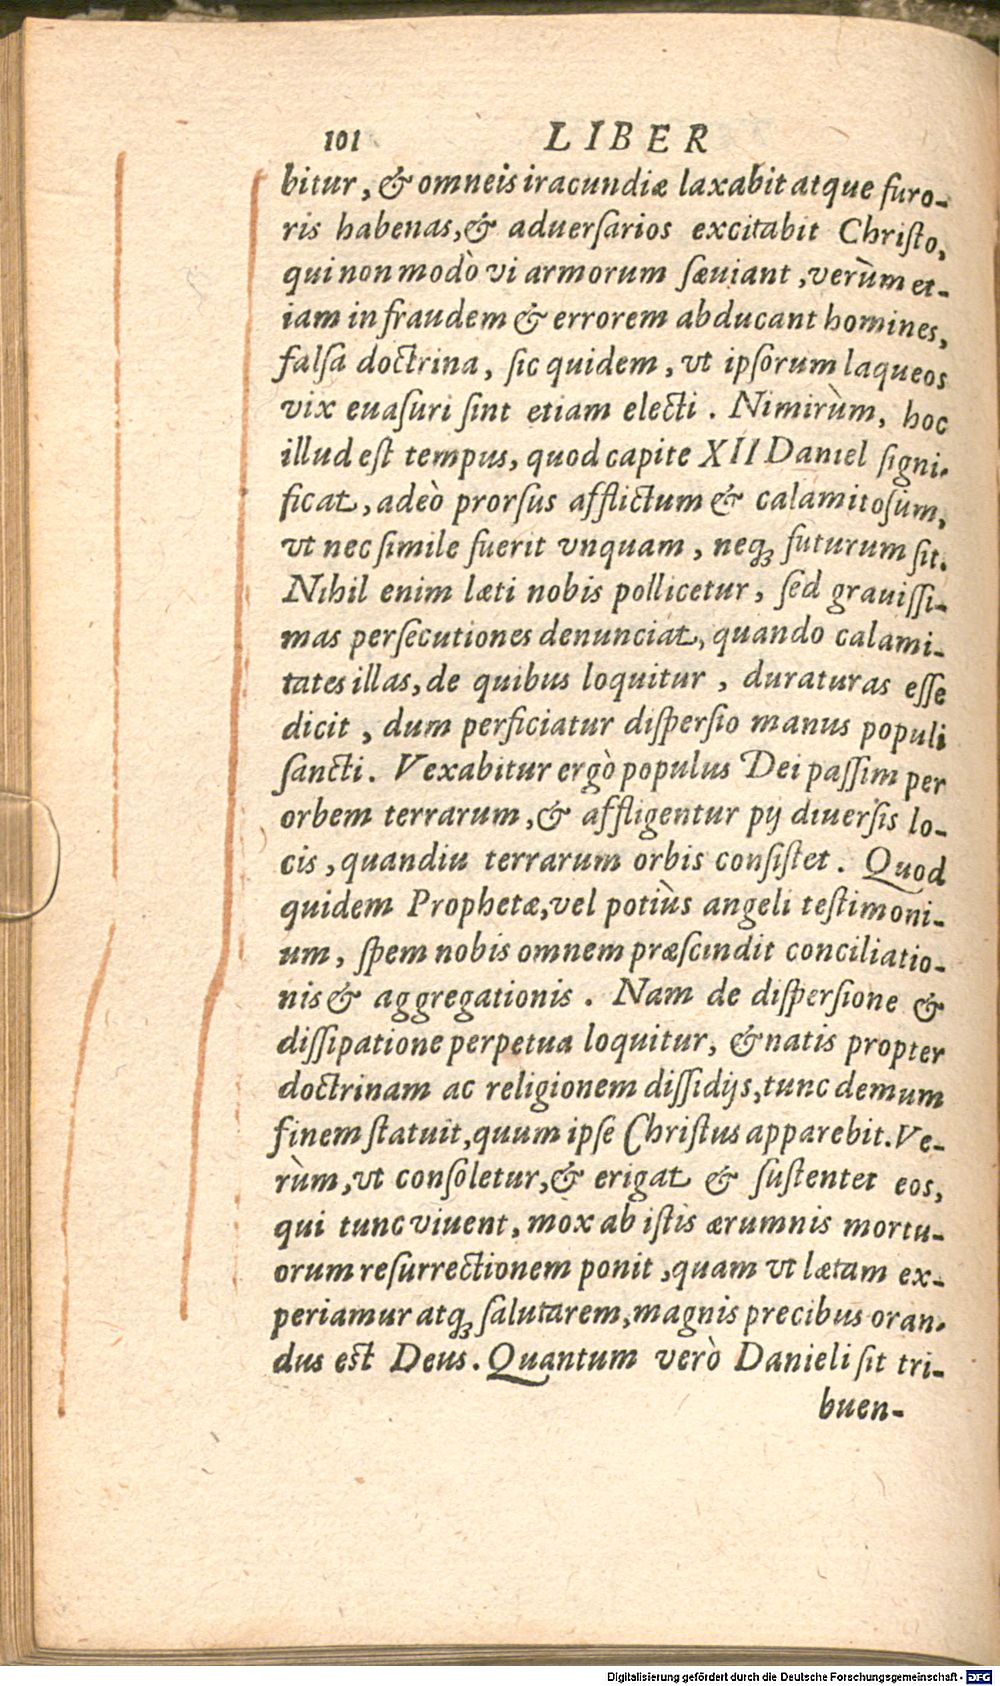 101 LIBER
bitur, & omneis iracundiæ laxabit atque furo-
ris habenas, & aduersarios excitabit Christo,
qui non modò vi armorum sæuiant, verùm et-
iam in fraudem & errorem abducant homines,
falsa doctrina, sic quidem, vt ipsorum laqueos
vix euasuri sint etiam electi. Nimirùm, hoc
illud est tempus, quod capite XII Daniel signi-
ficat, adeò prorsus afflictum & calamitosum,
vt nec simile fuerit vnquam, neq; futurum sit.
Nihil enim læti nobis pollicetur, sed grauissi-
mas persecutiones denunciat, quando calami-
tates illas, de quibus loquitur, duraturas esse
dicit, dum perficiatur dispersio manus populi
sancti. Vexabitur ergò populus Dei passim per
orbem terrarum, & affligentur pij diuersis lo-
cis, quandiu terrarum orbis consistet. Quod
quidem Prophetæ, vel potiùs angeli testimoni-
um, spem nobis omnem præscindit conciliatio-
nis & aggregationis. Nam de dispersione &
dissipatione perpetua loquitur, & natis propter
doctrinam ac religionem dissidijs, tunc demum
finem statuit, quum ipse Christus apparebit. Ve-
rùm, vt consoletur, & erigat & sustentet eos,
qui tunc viuent, mòx ab istis ærumnis mortu-
orum resurrectionem ponit, quam vt lætam ex-
periamur atq; salutarem, magnis precibus oran-
dus est Deus. Quantum verò Danieli sit tri-
buen-
Digitalisierung gefördert durch die Deutsche Forschungsgemeinschaft - DFG